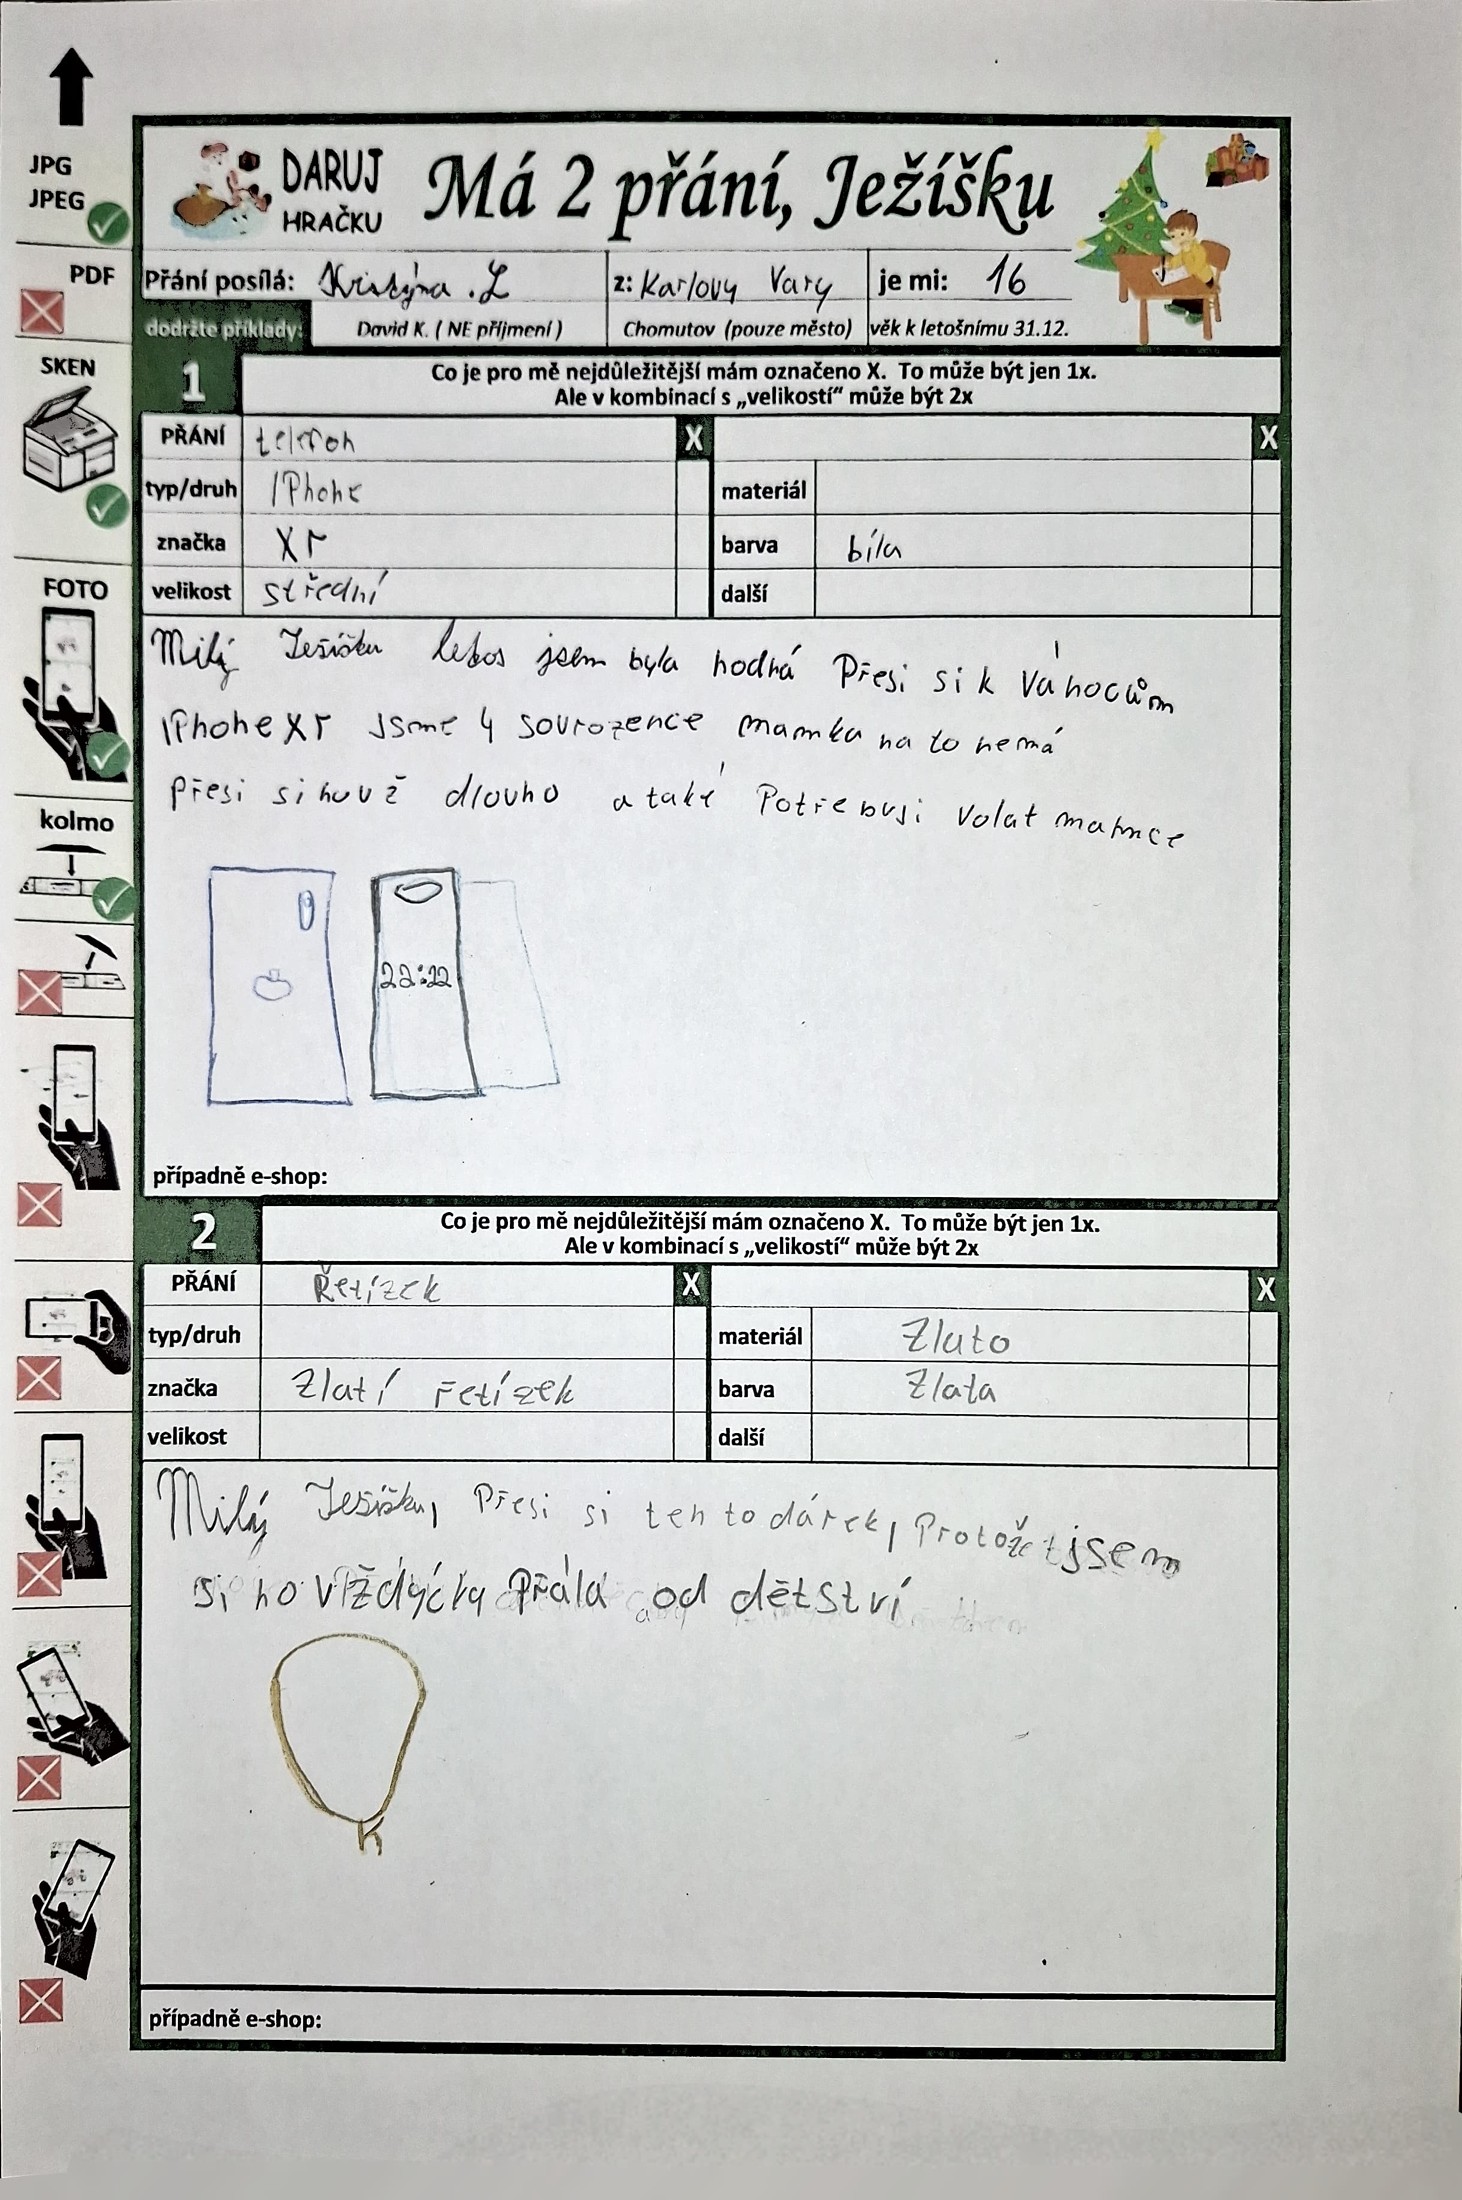 JPG
JPEG
PDF
SKEN
FOTO
kolmo
DARUJ
HRAČKU
Má 2 přání, Ježíšku
Přání posílá: Kristýna .L z: Karlovy Vary je mi: 16
dodržte příklady: David K. ( NE příjmení ) Chomutov (pouze město) věk k letošnímu 31.12.
1
Co je pro mě nejdůležitější mám označeno X. To může být jen 1x.
Ale v kombinací s „velikostí“ může být 2x
PŘÁNÍ telefon X X
typ/druh IPhone materiál
značka Xr barva bíla
velikost střední další
Milý Ješíšku letos jsem byla hodná Přeši si k Vánocům
IPhone Xr jsme 4 sourozence mamka na to nemá
Přesi si ho už dlouho a také Potřebuji volat mamce
22:22
případně e-shop:
2
Co je pro mě nejdůležitější mám označeno X. To může být jen 1x.
Ale v kombinací s „velikostí“ může být 2x
PŘÁNÍ Řetízek X X
typ/druh materiál Zlato
značka Zlatí řetízek barva Zlata
velikost další
Milý Ješíšku, Přesi si tento dárek, Protože jsem
si ho vždycky Přála od dětství
K
případně e-shop: